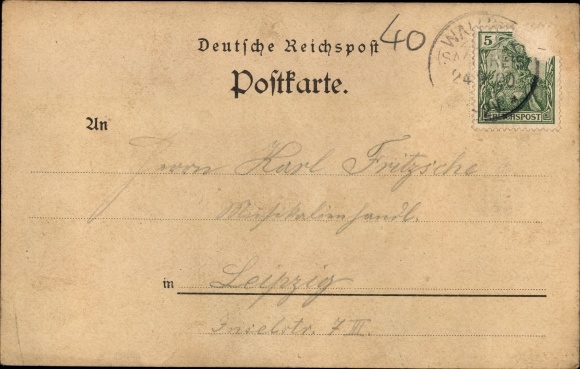 40
Deutsche Reichspost
Postkarte.
5
REICHSPOST
An
Herrn Karl Fritzsche
Musikalienhandl.
in Leipzig
Inselstr. 7 III.